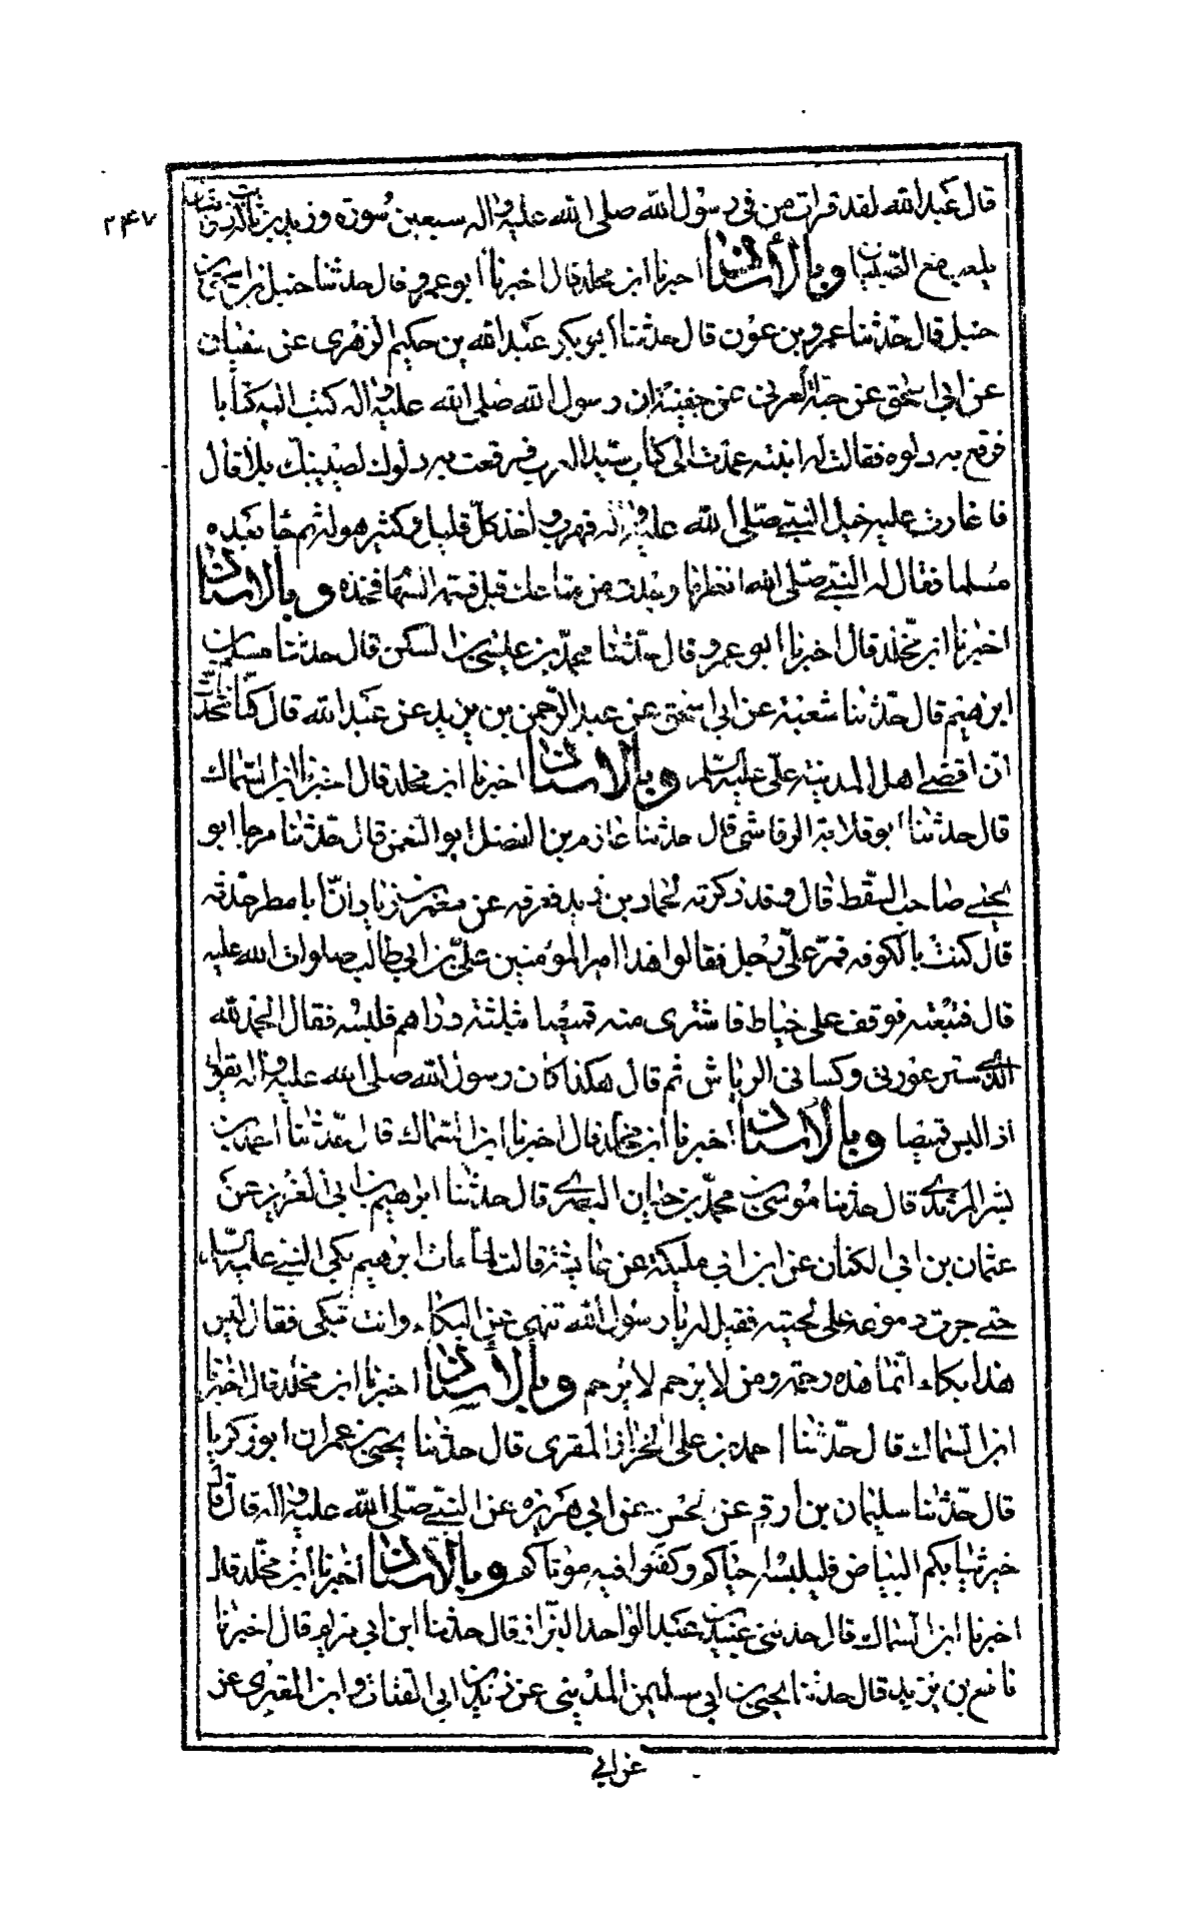 ۲۴۷
قال عبدالله لقد قرات من في رسول الله صلى الله عليه واله سبعين سورة وزيد بن ثابت
يلعب مع الصبيان وبالأسناد اخبرنا ابن مخلد قال اخبرنا ابو عمرو قال حدثنا حنبل بن اسحق بن
حنبل قال حدثنا عمرو بن عون قال حدثنا ابو بكر عبدالله بن حكيم الزهرى عن سفيان
عن ابى اسحق عن حبة العرنى عن جفينة ان رسول الله صلى الله عليه واله كتب اليه كتابا
فرقع به دلوه فقالت له ابنته عمدت الى كتاب سيد العرب فرقعت به دلوك ليصيبنك بلاء قال
فاغارت عليه خيل النبى صلى الله عليه واله فهرب واخذ كل قليل وكثير هو له ثم جاء بعده
مسلما فقال له النبى صلى الله انظر ما وجدت من متاعك قبل قسمة السهام فخذه وبالاسناد
اخبرنا ابن مخلد قال اخبرنا ابو عمرو قال حدثنا محمد بن عيسى بن السكن قال حدثنا مسلم بن
ابرهيم قال حدثنا شعبة عن ابى اسحق عن عبد الرحمن بن يزيد عن عبد الله قال كنا نتحدث
ان اقضى اهل المدينة على عليه السلام وبالاسناد اخبرنا ابن مخلد قال اخبرنا ابن السماك
قال حدثنا ابو قلابة الرقاشى قال حدثنا عازم بن الفضل ابو النعمن قال حدثنا مرجا ابو
يحيى صاحب السقط قال وقد ذكرته لحماد بن زيد فعرفه عن معمر بن زياد ان ابا مطر حدثه
قال كنت بالكوفه فمر على رجل فقالوا هذا امير المؤمنين على بن ابى طالب صلوات الله عليه
قال فتبعته فوقف على خياط فاشترى منه قميصا بثلثة دراهم فلبسه فقال الحمد لله
الذى ستر عورتى وكسانى الرياش ثم قال هكذا كان رسول الله صلى الله عليه واله يقول
اذا لبس قميصا وبالأسناد اخبرنا ابن مخلد قال اخبرنا ابن السماك قال حدثنا احمد بن
بشر المرثدى قال حدثنا موسى بن محمد بن حيان البصرى قال حدثنا ابراهيم بن ابى العزيز عن
عثمان بن ابى الكنان عن ابن ابى مليكة عن عائشة قالت لما مات ابرهيم بكى النبى عليه السلام
حتى جرت دموعه على لحيته فقيل له يا رسول الله تنهى عن البكاء وانت تبكى فقال ليس
هذا بكاء انما هذه رحمة ومن لا يرحم لا يرحم وبالأسناد اخبرنا ابن مخلد قال اخبرنا
ابن السماك قال حدثنا احمد بن على الخزاز المقرى قال حدثنا يحيى بن عمران ابو زكريا
قال حدثنا سليمان بن ارقم عن الحسن عن ابى هريره عن النبى صلى الله عليه واله قال قال
خير ثيابكم البياض فليلبسه احياكم وكفنوا فيه موتاكم وبالاسناد اخبرنا ابن مخلد قال
اخبرنا ابن السماك قال حدثنى عبيد بن عبد الواحد البزاز قال حدثنا ابن ابى مريم قال اخبرنا
نافع بن يزيد قال حدثنا يحيى بن ابى سليمن المدينى عن زيد بن ابى العتاب وابن المقبرى عن
عن ابى